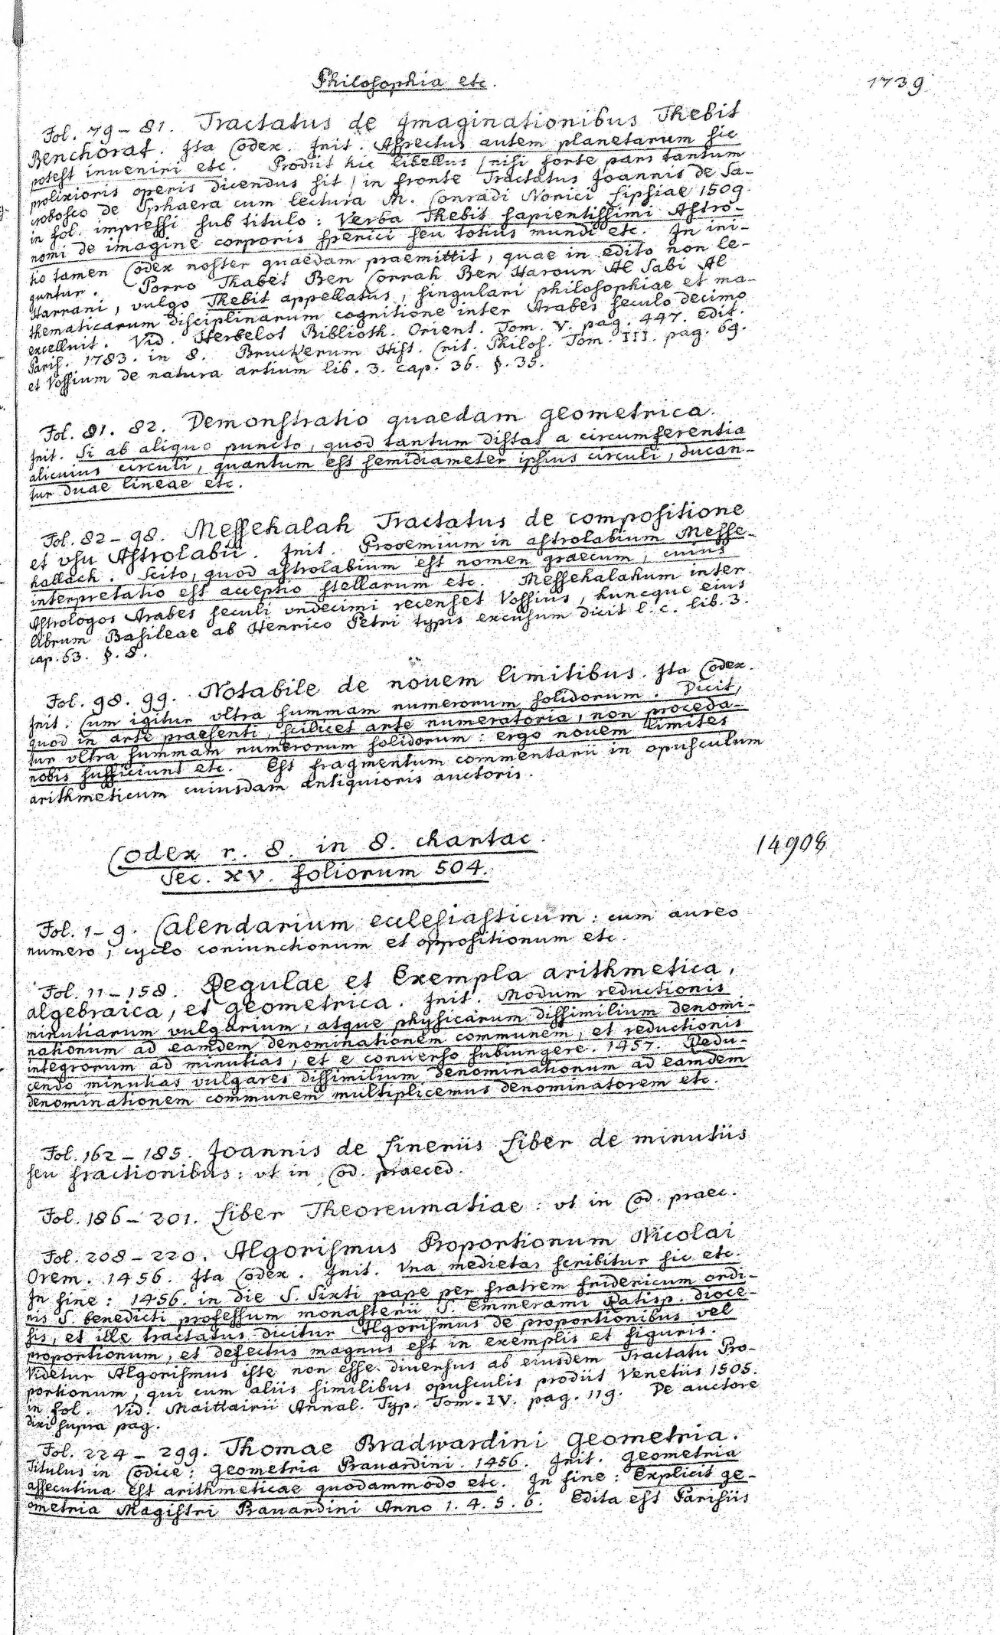 Philosophia etc.
1739
Fol. 79-81. Tractatus de Imaginationibus Thebit
Benchorat. Ita Codex. Init. Aspectus autem planetarum sic
potest inveniri etc. Prodiit hic libellus (nisi forte pars tantum
prolixioris operis dicendus sit) in fronte Tractatus Joannis de Sa-
crobosco de Sphaera cum lectura M. Conradi Norici Lipsiae 1509.
in fol. impressi sub titulo: Verba Thebit sapientissimi Astro-
nomi de imagine corporis sperici seu totius mundi etc. In ini-
tio tamen Codex noster quaedam praemittit, quae in edito non le-
guntur. Porro Thabet Ben Corrah Ben Haroun Al Sabi Al
Harrani, vulgo Thebit appellatus, singulari philosophiae et ma-
thematicarum disciplinarum cognitione inter Arabes seculo decimo
excelluit. Vid. Herbelot Biblioth. Orient. Tom. V. pag. 447. edit.
Paris. 1783. in 8. Bruckerum Hist. Crit. Philos. Tom. III. pag. 69.
et Vossium de natura artium lib. 3. cap. 36. §. 35.
Fol. 81. 82. Demonstratio quaedam geometrica.
Init. Si ab aliquo puncto, quod tantum distat a circumferentia
alicuius circuli, quantum est semidiameter ipsius circuli, ducan-
tur duae lineae etc.
Fol. 82-98. Messehalah Tractatus de compositione
et vsu Astrolabii. Init. Prooemium in astrolabium Messe-
hallach. Scito, quod astrolabium est nomen graecum, cuius
interpretatio est acceptio stellarum etc. Messehalahum inter
Astrologos Arabes seculi undecimi recenset Vossius, huncque eius
librum Basileae ab Henrico Petri typis excusum dicit l. c. lib. 3.
cap. 63. §. 8.
Fol. 98. 99. Notabile de nouem limitibus. Ita Codex.
Init. Cum igitur vltra summam numerorum solidorum. Dicit,
quod in arte praesenti, scilicet arte numeratoria, non proceda-
tur vltra summam numerorum solidorum: ergo nouem limites
nobis sufficiunt etc. Est fragmentum commentarii in opusculum
arithmeticum cuiusdam antiquioris auctoris.
Codex r. 8. in 8. chartac.
14908
Sec. XV. foliorum 504.
Fol. 1-9. Calendarium ecclesiasticum: cum aureo
numero, cyclo coniunctionum et oppositionum etc.
Fol. 11-158. Regulae et Exempla arithmetica,
algebraica, et geometrica. Init. Modum reductionis
minutiarum vulgarium, atque physicarum dissimilium denomi-
nationum ad eamdem denominationem communem, et reductionis
integrorum ad minutias, et e conuerso subiungere. 1457. Redu-
cendo minutias vulgares dissimilium denominationum ad eamdem
denominationem communem multiplicemus denominatorem etc.
Fol. 162-185. Joannis de Lineriis Liber de minutiis
seu fractionibus: vt in Cod. praeced.
Fol. 186-201. Liber Theoreumatiae: vt in Cod. praec.
Fol. 208-220. Algorismus Proportionum Nicolai
Orem. 1456. Ita Codex. Init. Vna medietas scribitur sic etc.
In fine: 1456. in die S. Sixti pape per fratrem fridericum ordi-
nis S. benedicti professum monasterii S. Emmerami Ratisp. dioce-
sis, et ille tractatus dicitur Algorismus de proportionibus vel
proportionum, et defectus magnus est in exemplis et figuris.
Videtur Algorismus iste non esse diuersus ab eiusdem Tractatu Pro-
portionum, qui cum aliis similibus opusculis prodiit Venetiis 1505.
in fol. Vid. Maittairii Annal. Typ. Tom. IV. pag. 119. De auctore
dixi supra pag.
Fol. 224-299. Thomae Bradwardini Geometria.
Titulus in Codice: Geometria Brauardini. 1456. Init. Geometria
assecutiua est arithmeticae quodammodo etc. In fine: Explicit ge-
ometria Magistri Brauardini Anno 1. 4. 5. 6. Edita est Parisiis